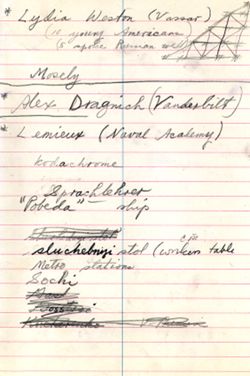 * Lydia Weston (Vassar)
(10 young Americans)
Mosely
* Alex Dragnich (Vanderbilt)
* Lemieux (Naval Academy)
Kodachrome
Sprachlehrer
"Pobeda" ship
sluchebnizi stol (workers table
Metro stations
Sochi